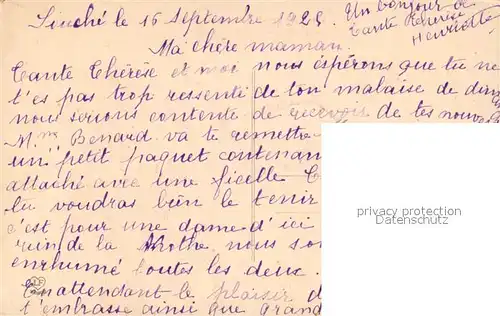 Souché le 15 Septembre 192
Un bonjour de
Tante
Henriette
Ma chère maman.
Tante Thérèse et moi nous espérons que tu ne
t'es pas trop ressenti de ton malaise de
nous serions contente de recevoir de tes nouv
Mme Benard va te remettre
un petit paquet contenan
attaché avec une ficelle
tu voudras bien le tenir
c'est pour une dame d'ici
de la Mothe nous so
enrhumé toutes les deux.
En attendant le plaisir d
t'embrasse ainsi que grand
privacy protection
datenschutz